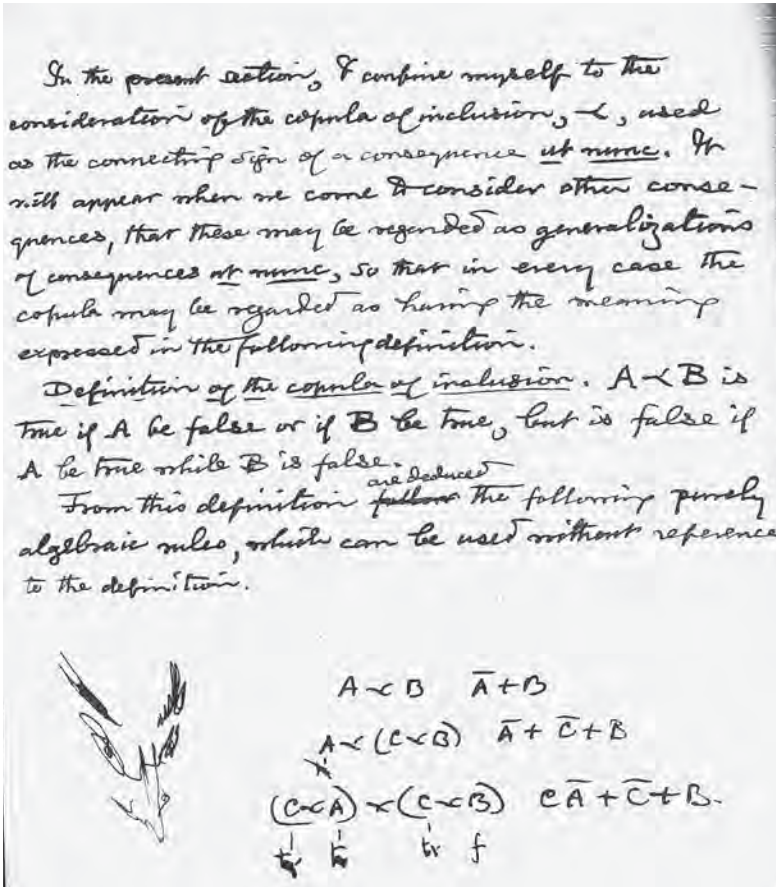 In the present section, I confine myself to the
consideration of the copula of inclusion, ⤙, used
as the connecting sign of a consequence ut nunc. It
will appear when we come to consider other conse-
quences, that these may be regarded as generalizations
of consequences ut nunc, so that in every case the
copula may be regarded as having the meaning
expressed in the following definition.
Definition of the copula of inclusion. A ⤙ B is
true if A be false or if B be true, but is false if
A be true while B is false.
From this definition are deduced the following purely
algebraic rules, which can be used without reference
to the definition.
A ⤙ B  A̅ + B
A ⤙ (C ⤙ B)  A̅ + C̅ + B
(C ⤙ A) ⤙ (C ⤙ B)  C A̅ + C̅ + B.
tr f